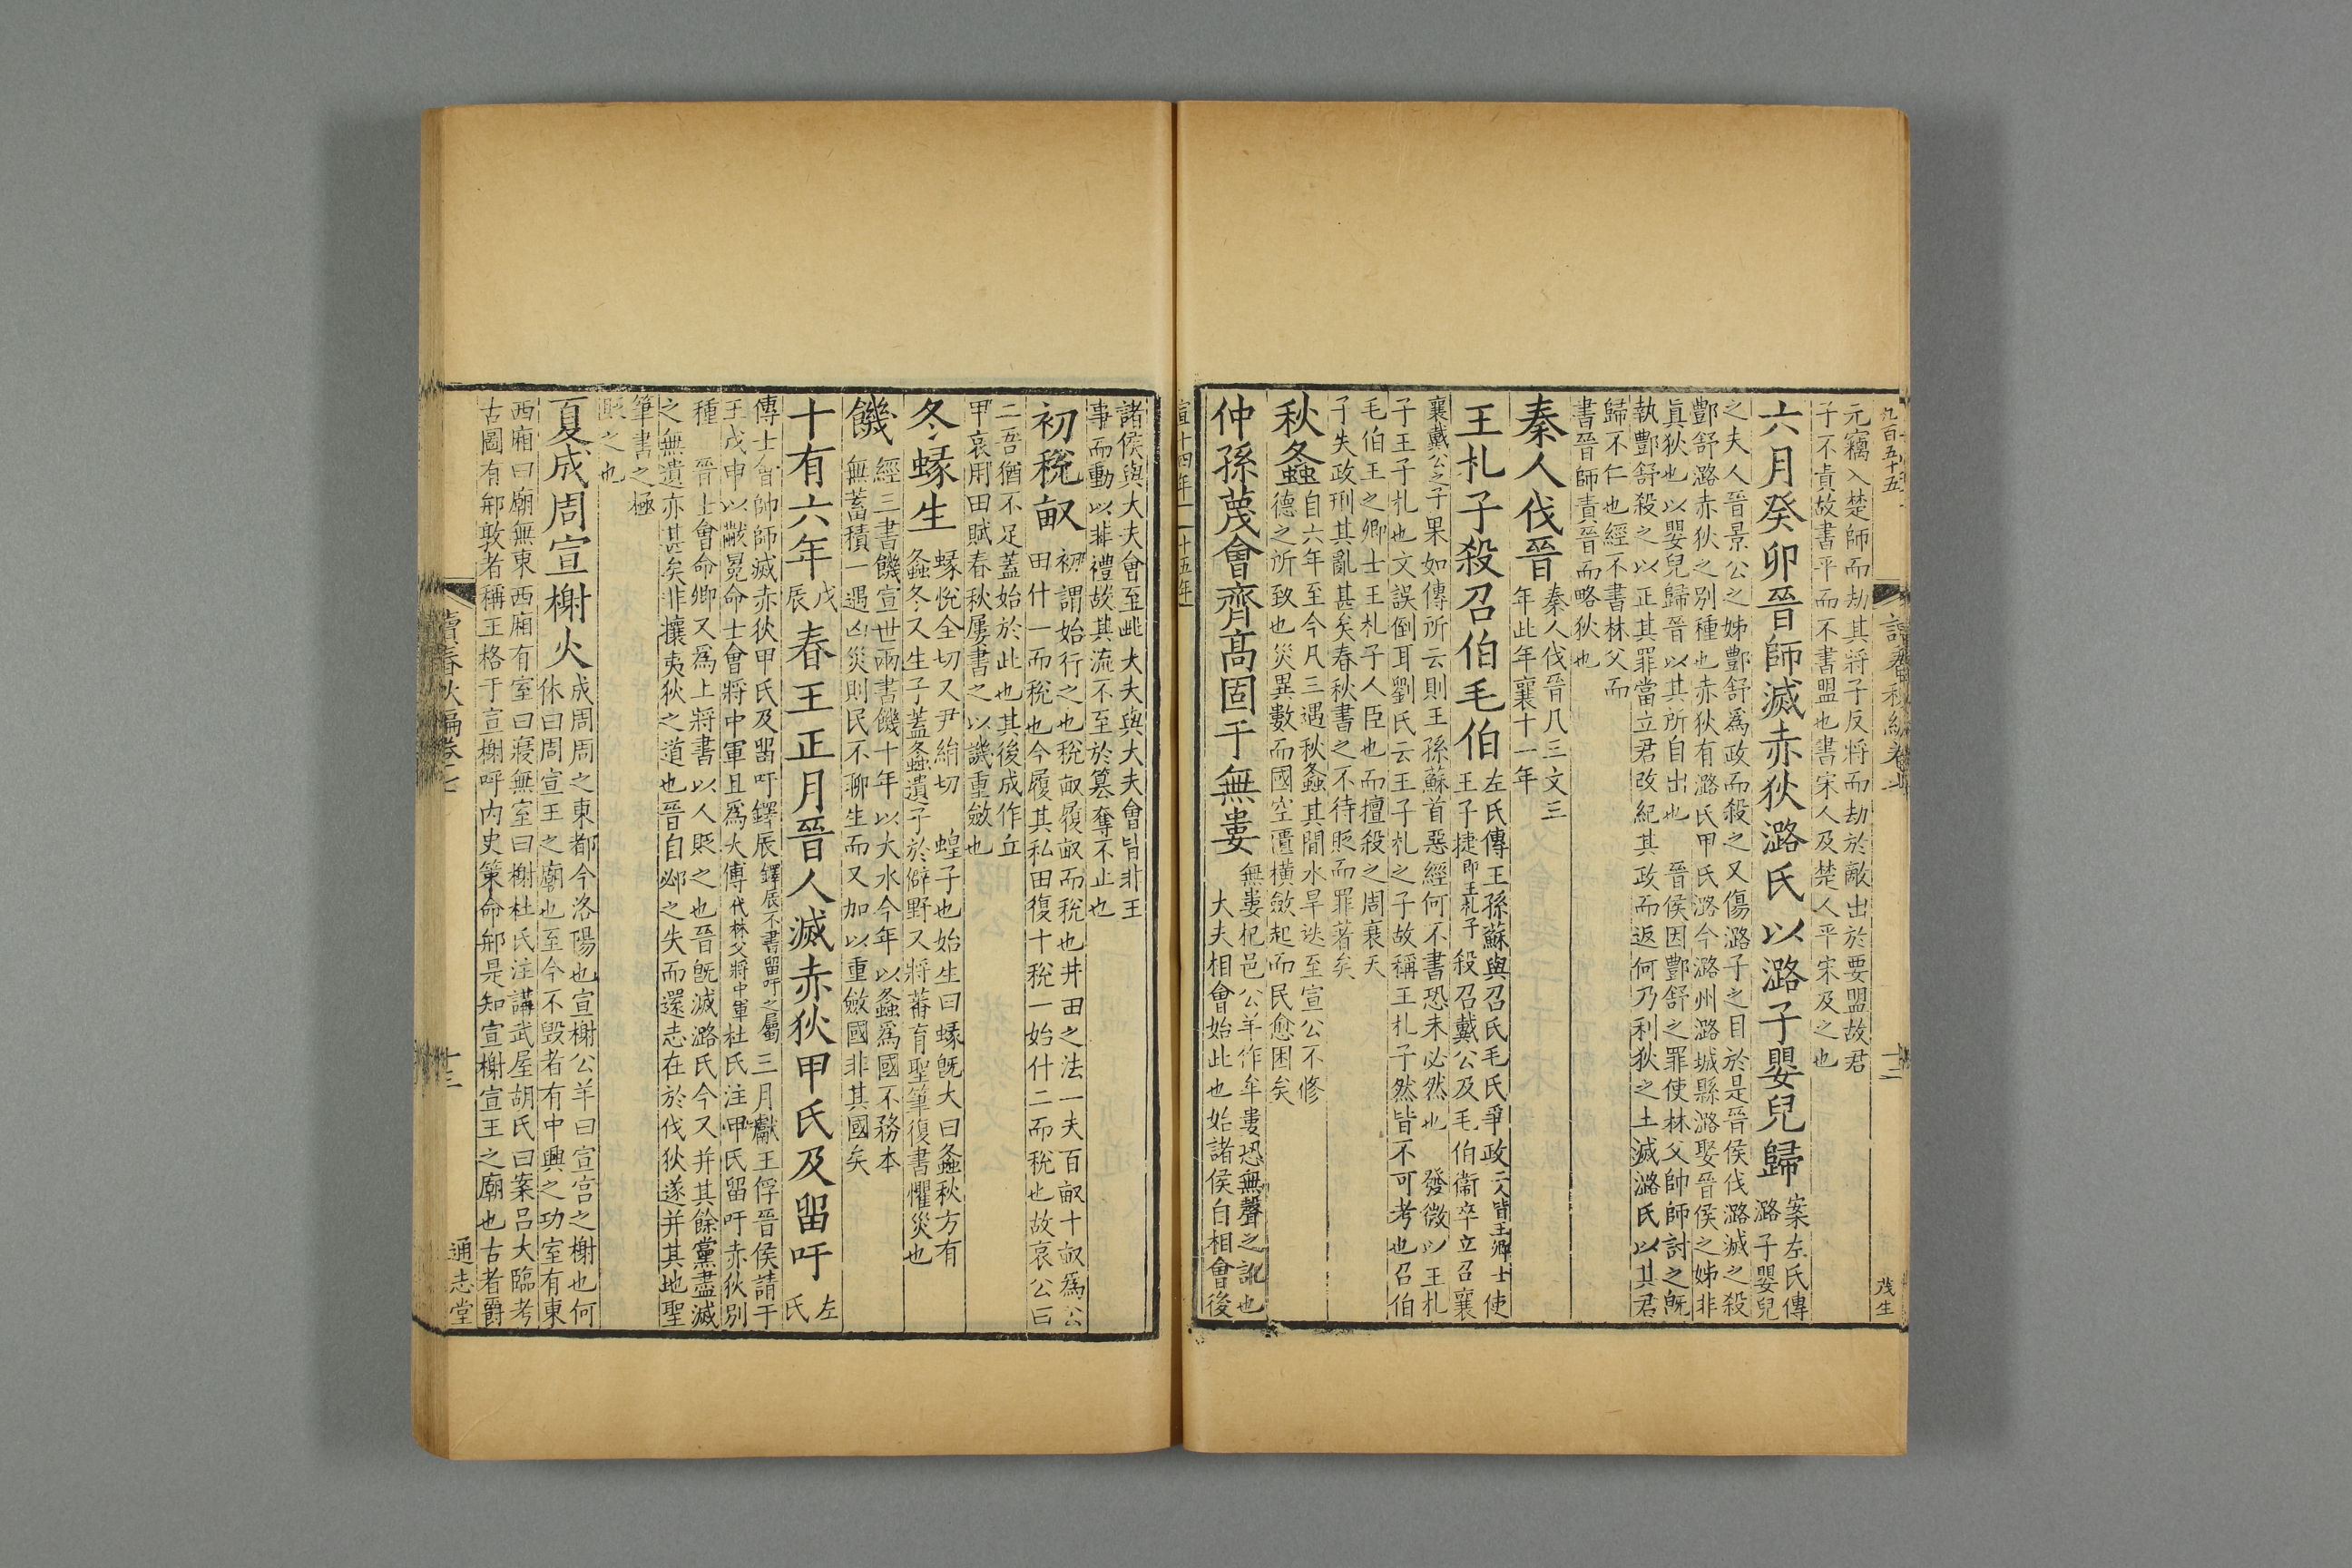 元竊入楚師而劫其將子反將而劫於敵出於要盟故君
子不貴故書平而不書盟也書宋人及楚人平宋及之也
六月癸卯晉師滅赤狄潞氏以潞子嬰兒歸 案左氏傳
潞子嬰兒
之夫人晉景公之姊酆舒爲政而殺之又傷潞子之目於是晉侯伐潞滅之殺
酆舒潞赤狄之別種也赤狄有潞氏甲氏潞今潞州潞城縣潞娶晉侯之姊非
眞狄也以嬰兒歸晉以其所自出也 晉侯因酆舒之罪使林父帥師討之旣
執酆舒殺之以正其罪當立君改紀其政而返何乃利狄之土滅潞氏以其君
歸不仁也經不書林父而
書晉師責晉而略狄也
秦人伐晉 秦人伐晉凡三文三
年此年襄十一年
王札子殺召伯毛伯 左氏傳王孫蘇與召氏毛氏爭政二人皆王卿士使
王子捷即王札子殺召戴公及毛伯衞卒立召襄
襄戴公之子果如傳所云則王孫蘇首惡經何不書恐未必然也 發微以王札
子王子札也文誤倒耳劉氏云王子札之子故稱王札子然皆不可考也召伯
毛伯王之卿士王札子人臣也而擅殺之周衰天
子失政刑其亂甚矣春秋書之不待貶而罪著矣
秋螽 自六年至今凡三遇秋螽其間水旱迭至宣公不修
德之所致也災異數而國空匱橫斂起而民愈困矣
仲孫蔑會齊高固于無婁 無婁杞邑公羊作牟婁恐無聲之訛也
大夫相會始此也始諸侯自相會後
宣十四年 十五年
諸侯與大夫會至此大夫與大夫會皆非王
事而動以非禮故其流不至於簒奪不止也
初稅畝 初謂始行之也稅畝履畝而稅也井田之法一夫百畝十畝爲公
田什一而稅也今履其私田復十稅一始什二而稅也故哀公曰
二吾猶不足蓋始於此也其後成作丘
甲哀用田賦春秋屢書之以譏重斂也
冬蝝生 蝝悅全切又尹絹切 蝗子也始生曰蝝旣大曰螽秋方有
螽冬又生子蓋螽遺子於僻野又將蕃育聖筆復書懼災也
饑 經三書饑宣世兩書饑十年以大水今年以螽爲國不務本
無蓄積一遇凶災則民不聊生而又加以重斂國非其國矣
十有六年 戊辰 春王正月晉人滅赤狄甲氏及留吁 左氏
傳士會帥師滅赤狄甲氏及留吁鐸辰鐸辰不書留吁之屬三月獻王俘晉侯請于
王戊申以黻冕命士會將中軍且爲大傅代林父將中軍杜氏注甲氏留吁赤狄別
種 晉士會命卿又爲上將書以人貶之也晉旣滅潞氏今又并其餘黨盡滅
之無遺亦甚矣非攘夷狄之道也晉自邲之失而還志在於伐狄遂并其地聖
筆書之極
貶之也
夏成周宣榭火 成周周之東都今洛陽也宣榭公羊曰宣宮之榭也何
休曰周宣王之廟也至今不毀者有中興之功室有東
西廂曰廟無東西廂有室曰寢無室曰榭杜氏注講武屋胡氏曰案呂大臨考
古圖有䢴敦者稱王格于宣榭呼內史策命䢴是知宣榭宣王之廟也古者爵
讀春秋編卷七
十三
通志堂
九百五十五
十二
茂生